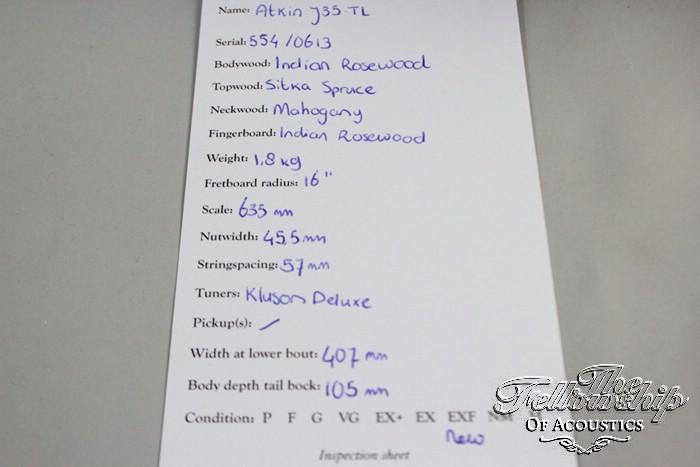 Name: Atkin J35-TL
Serial: 554/0613
Bodywood: Indian Rosewood
Topwood: Sitka Spruce
Neckwood: Mahogany
Fingerboard: Indian Rosewood
Weight: 1.8 kg
Fretboard radius: 16"
Scale: 635 mm
Nutwidth: 45.5 mm
Stringspacing: 57 mm
Tuners: Kluson Deluxe
Pickup(s): /
Width at lower bout: 407 mm
Body depth tail bock: 105 mm
Condition: P F G VG EX+ EX EXF NM
New
Inspection sheet
The
Fellowship
Of Acoustics